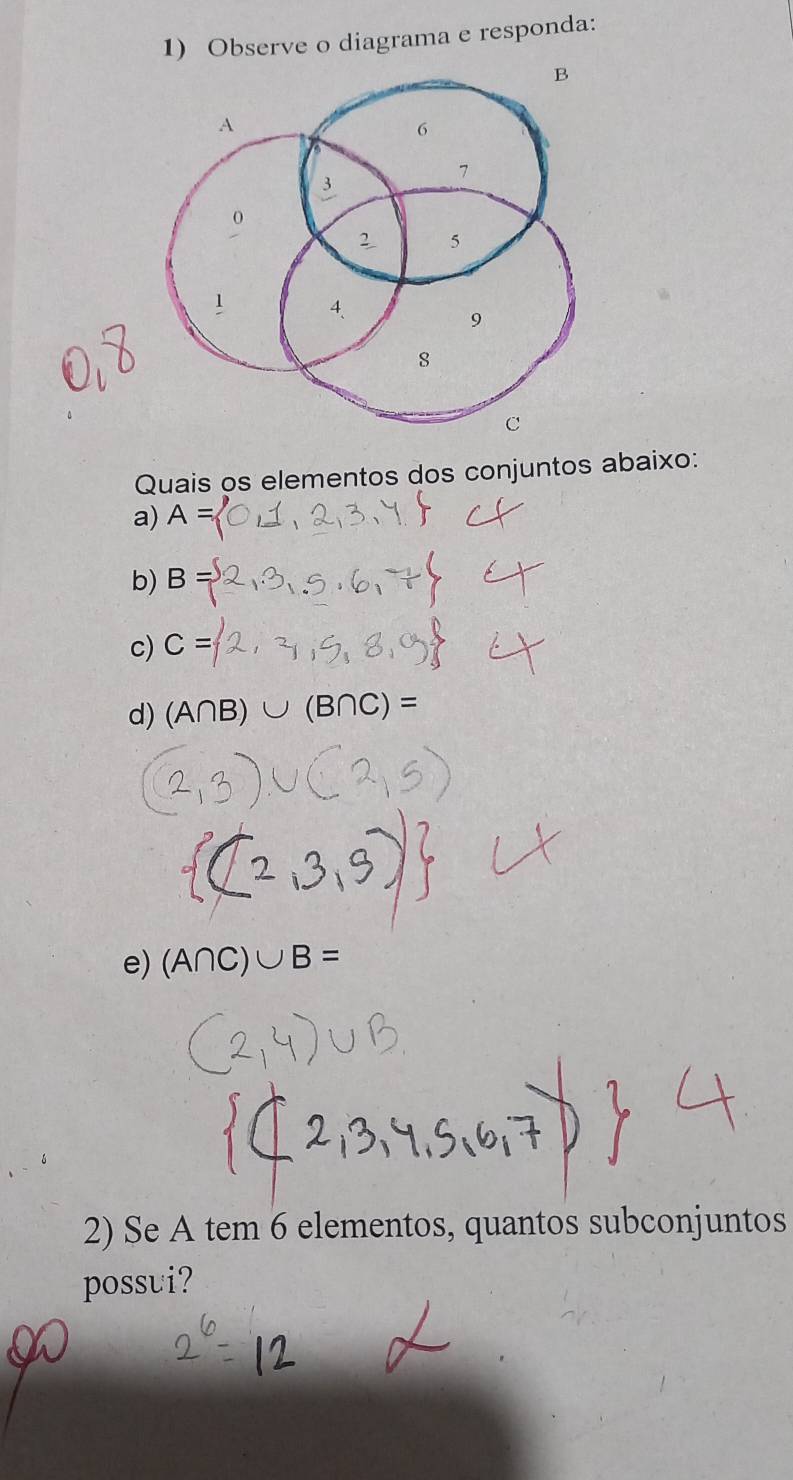 1) Observe o diagrama e responda:
B
A
6
7
3
0
2 5
1
4
9
8
0,8
C
Quais os elementos dos conjuntos abaixo:
a) A = {0,1,2,3,4}
b) B = {2,3,5,6,7}
c) C = {2,4,5,8,9}
d) (A∩B) ∪ (B∩C) =
(2,3) ∪ (2,5)
{(2,3,5)}
e) (A∩C) ∪ B =
(2,4) ∪ B
{(2,3,4,5,6,7)}
2) Se A tem 6 elementos, quantos subconjuntos
possui?
2⁶ = 12